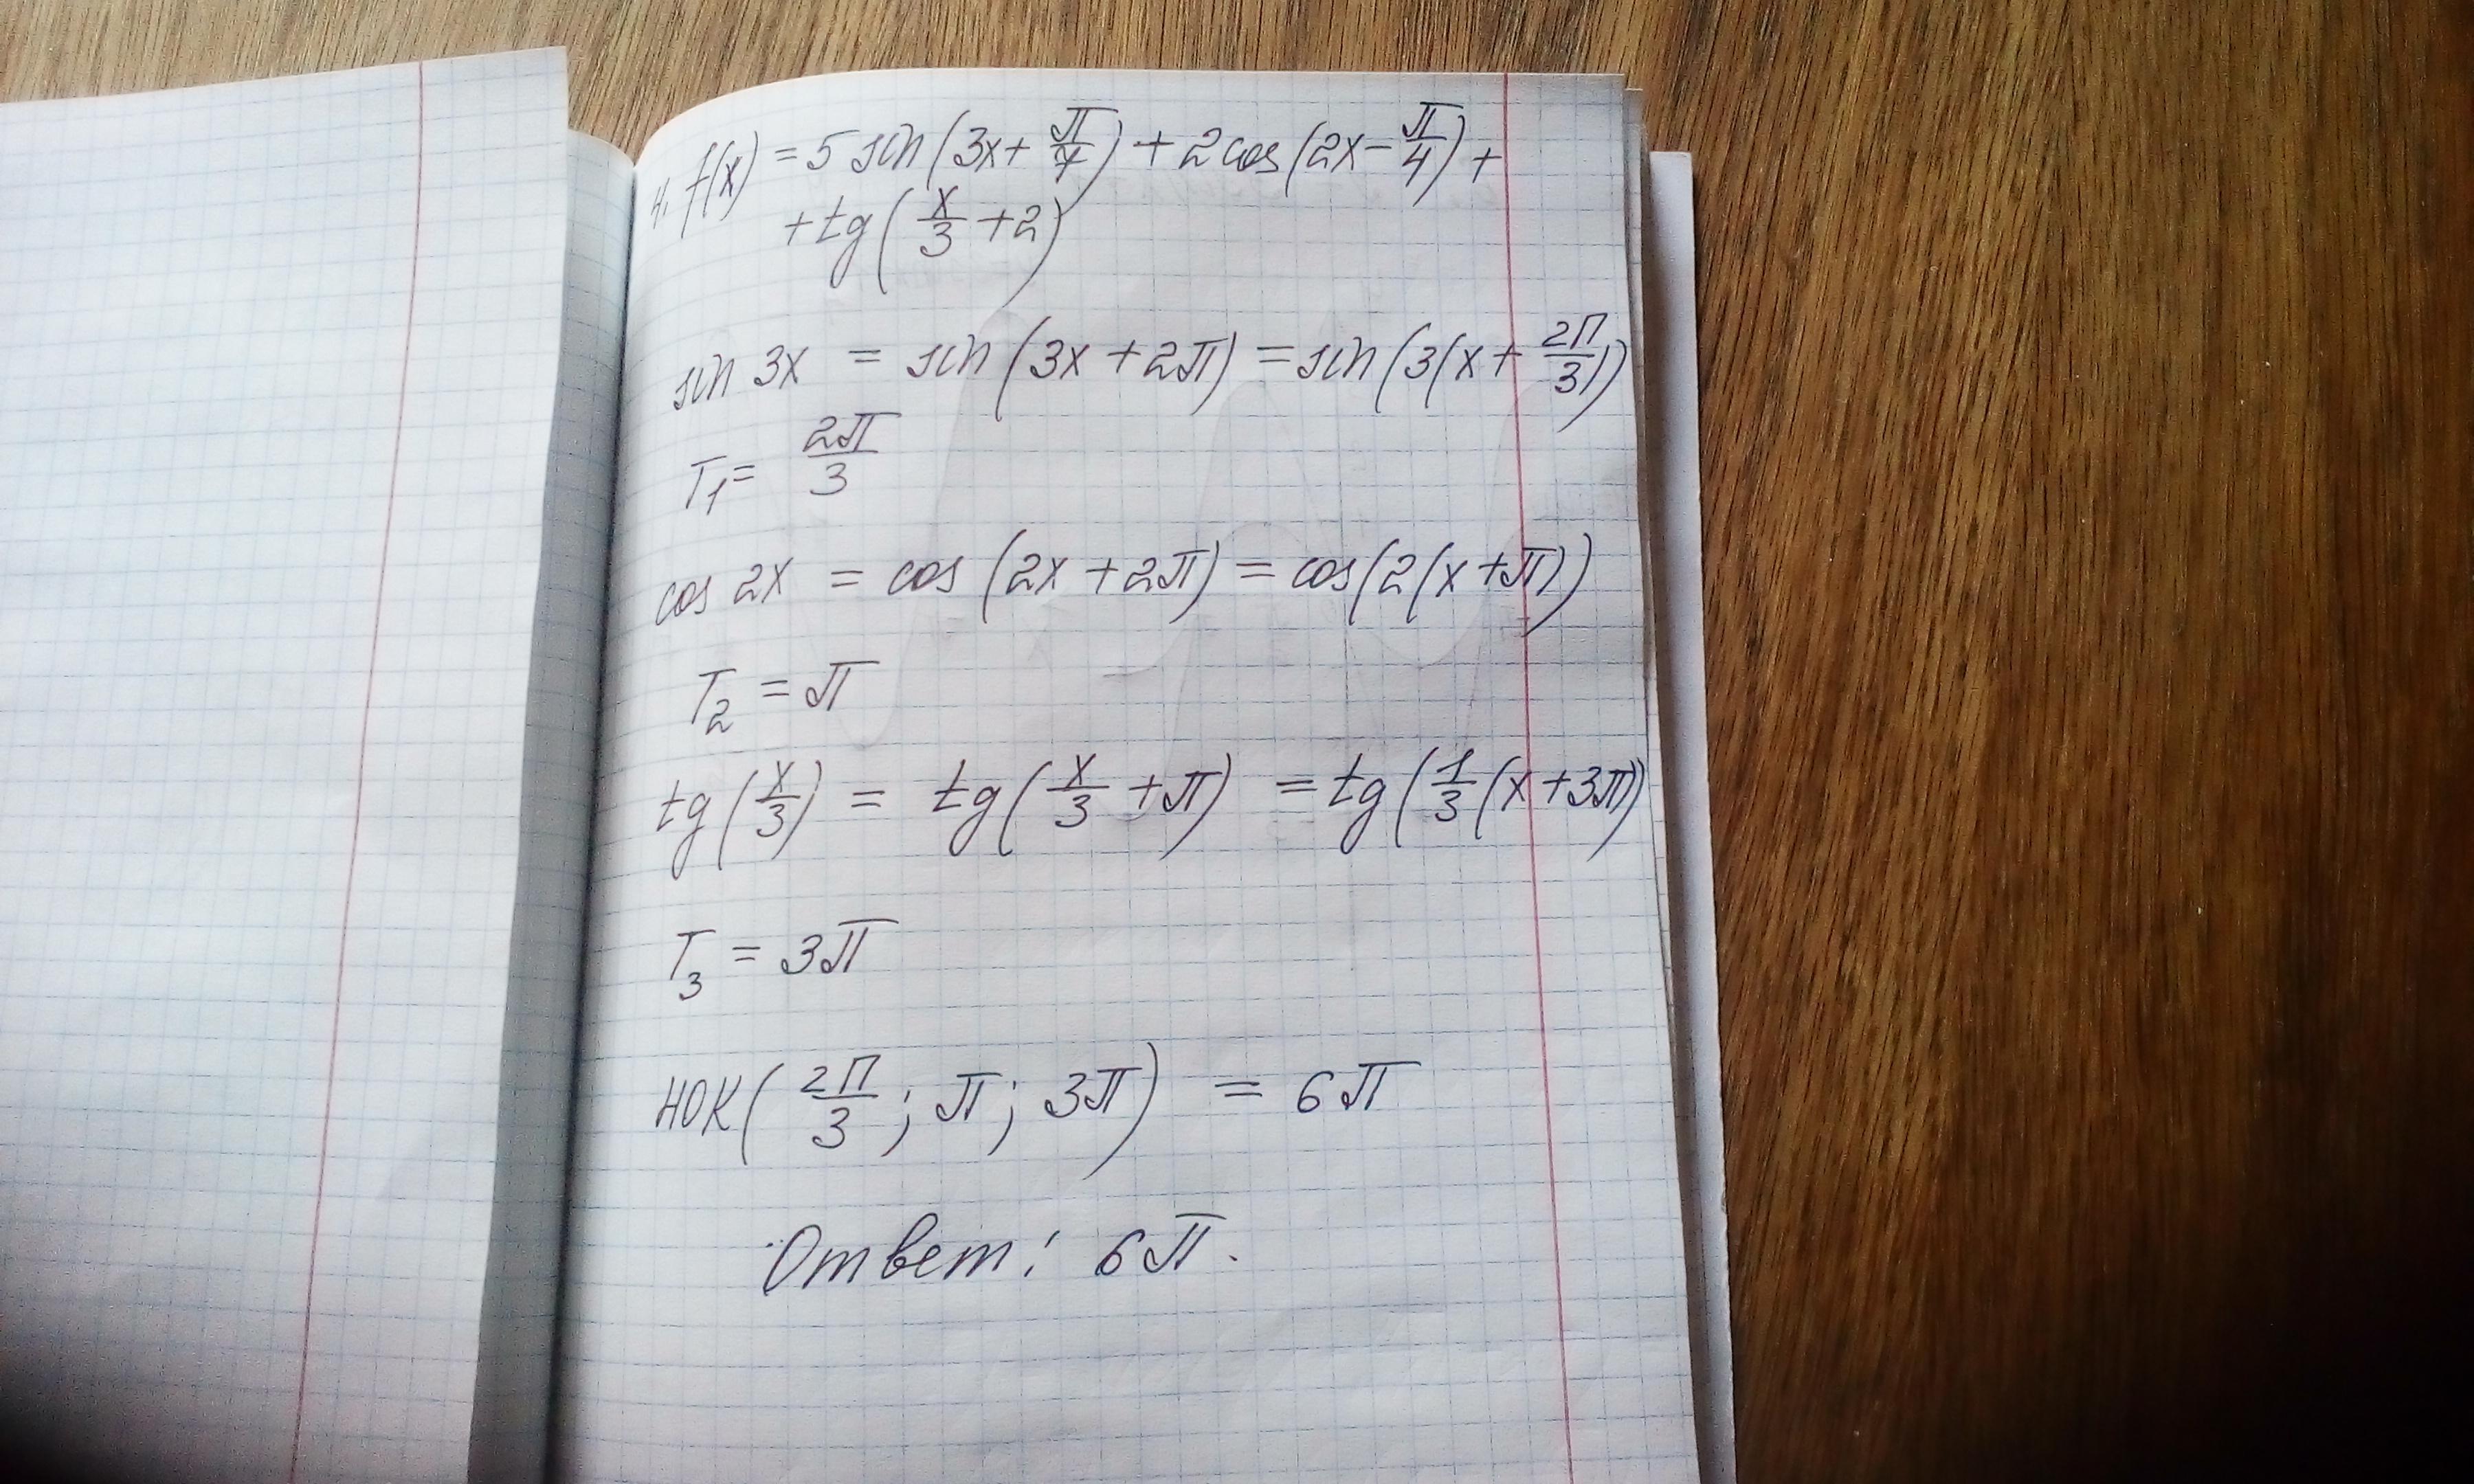 4. f(x) = 5 sin(3x + π/7) + 2 cos(2x − π/4) +
+ tg(x/3 + 2)
sin 3x = sin(3x + 2π) = sin(3(x + 2π/3))
T₁ = 2π/3
cos 2x = cos(2x + 2π) = cos(2(x + π))
T₂ = π
tg(x/3) = tg(x/3 + π) = tg(1/3(x + 3π))
T₃ = 3π
НОК(2π/3; π; 3π) = 6π
Ответ: 6π.